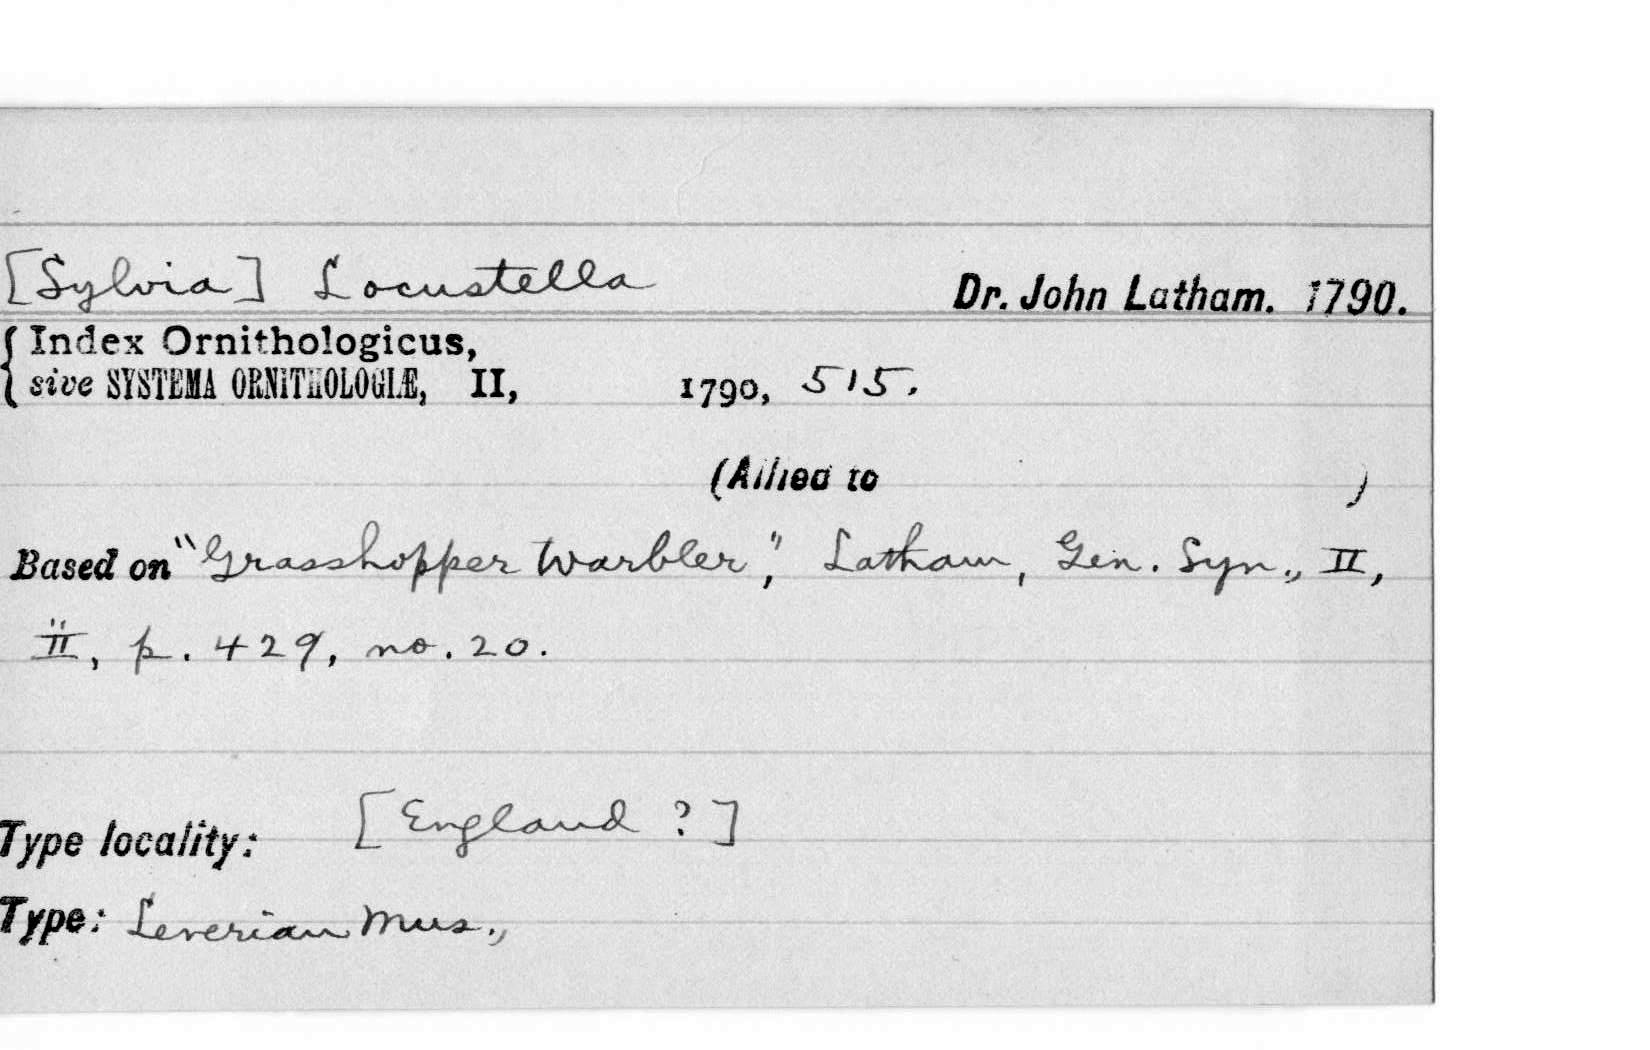 [Sylvia] Locustella Dr. John Latham. 1790.
Index Ornithologicus,
sive SYSTEMA ORNITHOLOGIÆ, II, 1790, 515.
(Allied to )
Based on "Grasshopper Warbler", Latham, Gen. Syn., II,
ii, p. 429, no. 20.
Type locality: [England ?]
Type: Leverian Mus.,